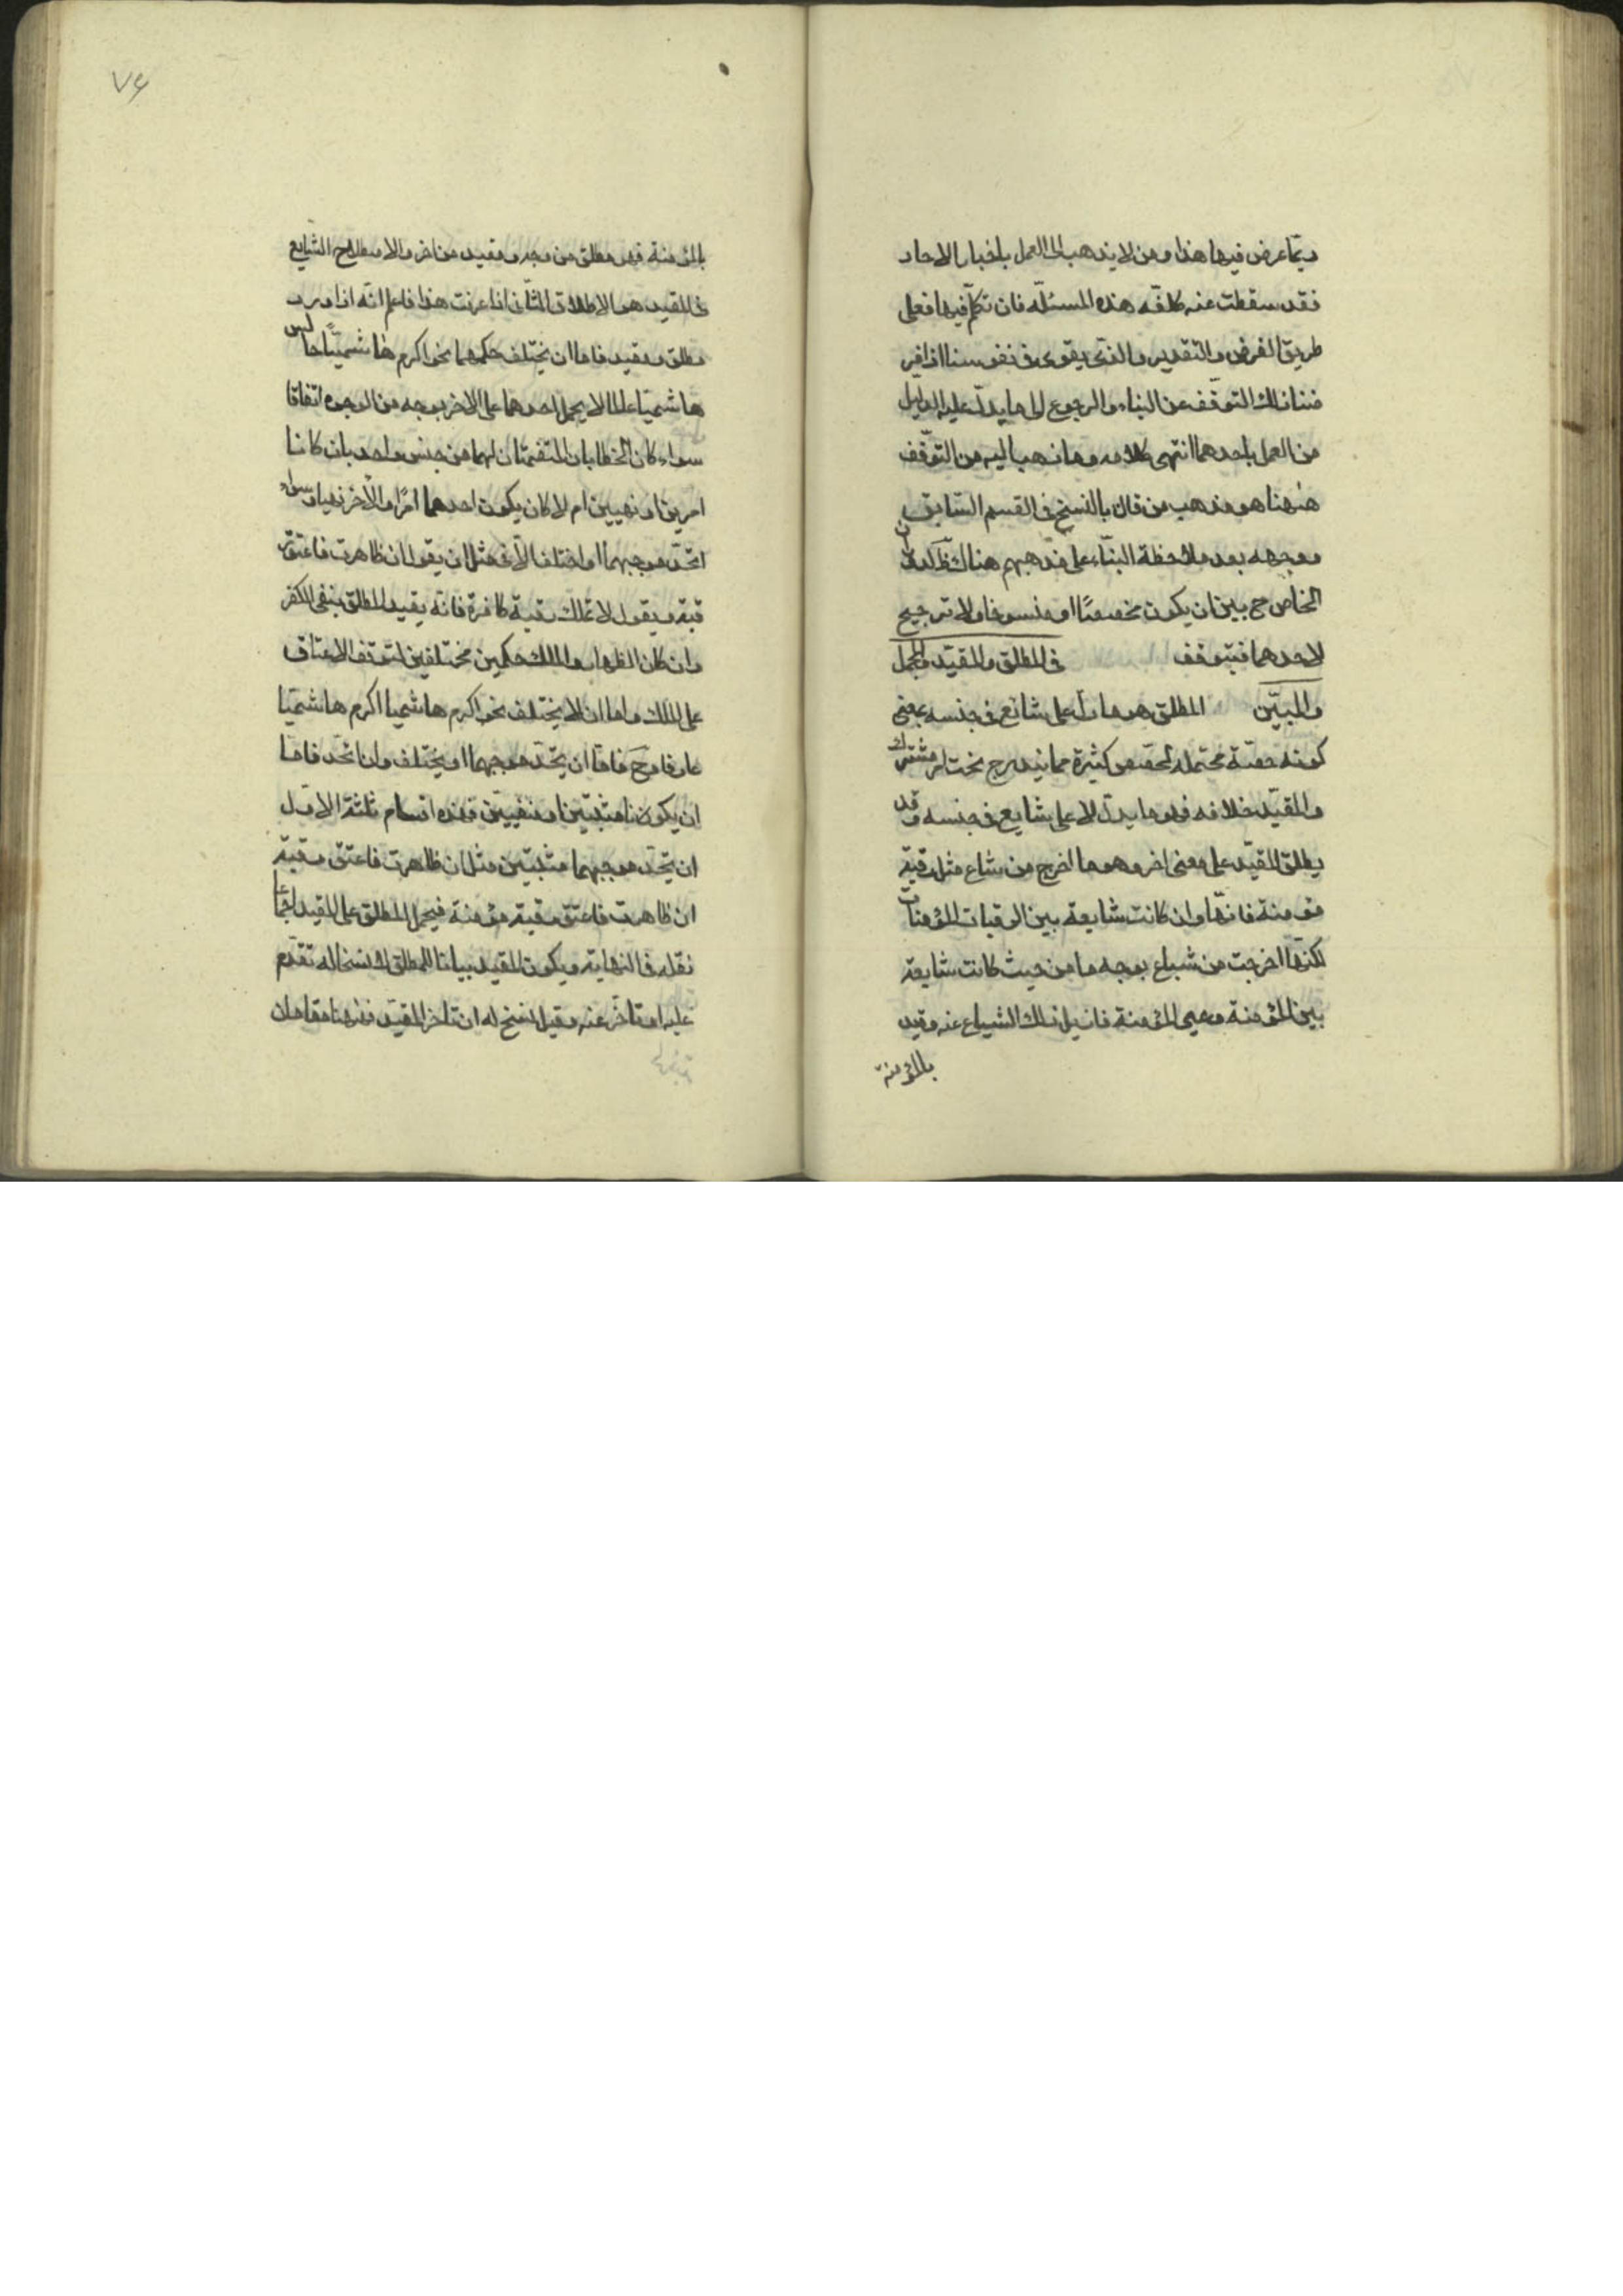 ربّما عرض فيها هذا ومن لا يذهب الى العمل باخبار الاحاد
فقد سقطت عنه كلفة هذه المسئلة فان تكلّم فيها فعلى
طريق الفرض والتقدير والذى يقوى فى نفوسنا اذا فر
ضنا ذلك التوقّف عن البناء والرجوع الى ما يدلّ عليه الدليل
من العمل باحدهما انتهى كلامه وما ذهب اليه من التوقّف
هٰهنا هو مذهب من قال بالنسخ فى القسم السّابق
ووجهه بعد ملاحظة البنّاء على مذهبهم هناك ظ لدوران
الخاصّ ح بين ان يكون مخصصًا او منسوخا ولا ترجيح
لاحدهما فيتوقف فى المطلق والمقيّد والمجمل
والمبيّن المطلق هو ما دل على شائع فى جنسه بمعنى
كونه حصّة محتملة لحصص كثيرة مما يندرج تحت امر مشترك
والمقيّد خلافه فهو ما يدل لا على شايع فى جنسه وقد
يطلق المقيّد على معنى اخر وهو ما اخرج من شاع مثل رقبة
مؤمنة فانها وان كانت شايعة بين الرقبات المؤمنات
لكنها اخرجت من شياع بوجه ما من حيث كانت شايعة
بين المؤمنة وغير المؤمنة فازيل ذلك الشياع عنه وقيد
بالمؤمنة
٧٤
بالمؤمنة فهو مطلق من وجه ومقيد من اخر والاصطلاح الشايع
فى المقيد هو الاطلاق الثّانى اذا عرفت هذا فاعلم انّه اذا ورد
مطلق ومقيد فاما ان يختلف حكمهما نحو اكرم هاشميّا جالس
هاشميّا عالما لا يحمل احدهما على الاخر بوجه من الوجوه اتفاقا
سواء كان الخطابان المتضمنان لهما من جنس واحد بان كانا
امرين او نهيين ام لا كان يكون احدهما امرًا والاخر نهيا وسواء
اتحد موجبهما او اختلف الّا فى مثل ان يقول ان ظاهرت فاعتق ر
قبة ويقول لا تملك رقبة كافرة فانّه يقيد المطلق بنفى الكفر
وان كان الظهار والملك حكمين مختلفين لتوقف الاعتاق
على الملك واما ان لا يختلف نحو اكرم هاشميا اكرم هاشميّا
عارفا وح فامّا ان يتحد موجبهما او يختلف وان اتحد فامّا
ان يكونا مثبتين او منفيين فهذه اقسام ثلثة الاول
ان يتحد موجبهما مثبتين مثل ان ظاهرت فاعتق رقبة
ان ظاهرت فاعتق رقبة مؤمنة فيحمل المطلق على المقيد اجماعا
نقله فى النهاية ويكون المقيد بيانا للمطلق لا نسخا له تقدّم
عليه او تاخر عنه وقيل نسخ له ان تاخر المقيد فهٰهنا مقامان